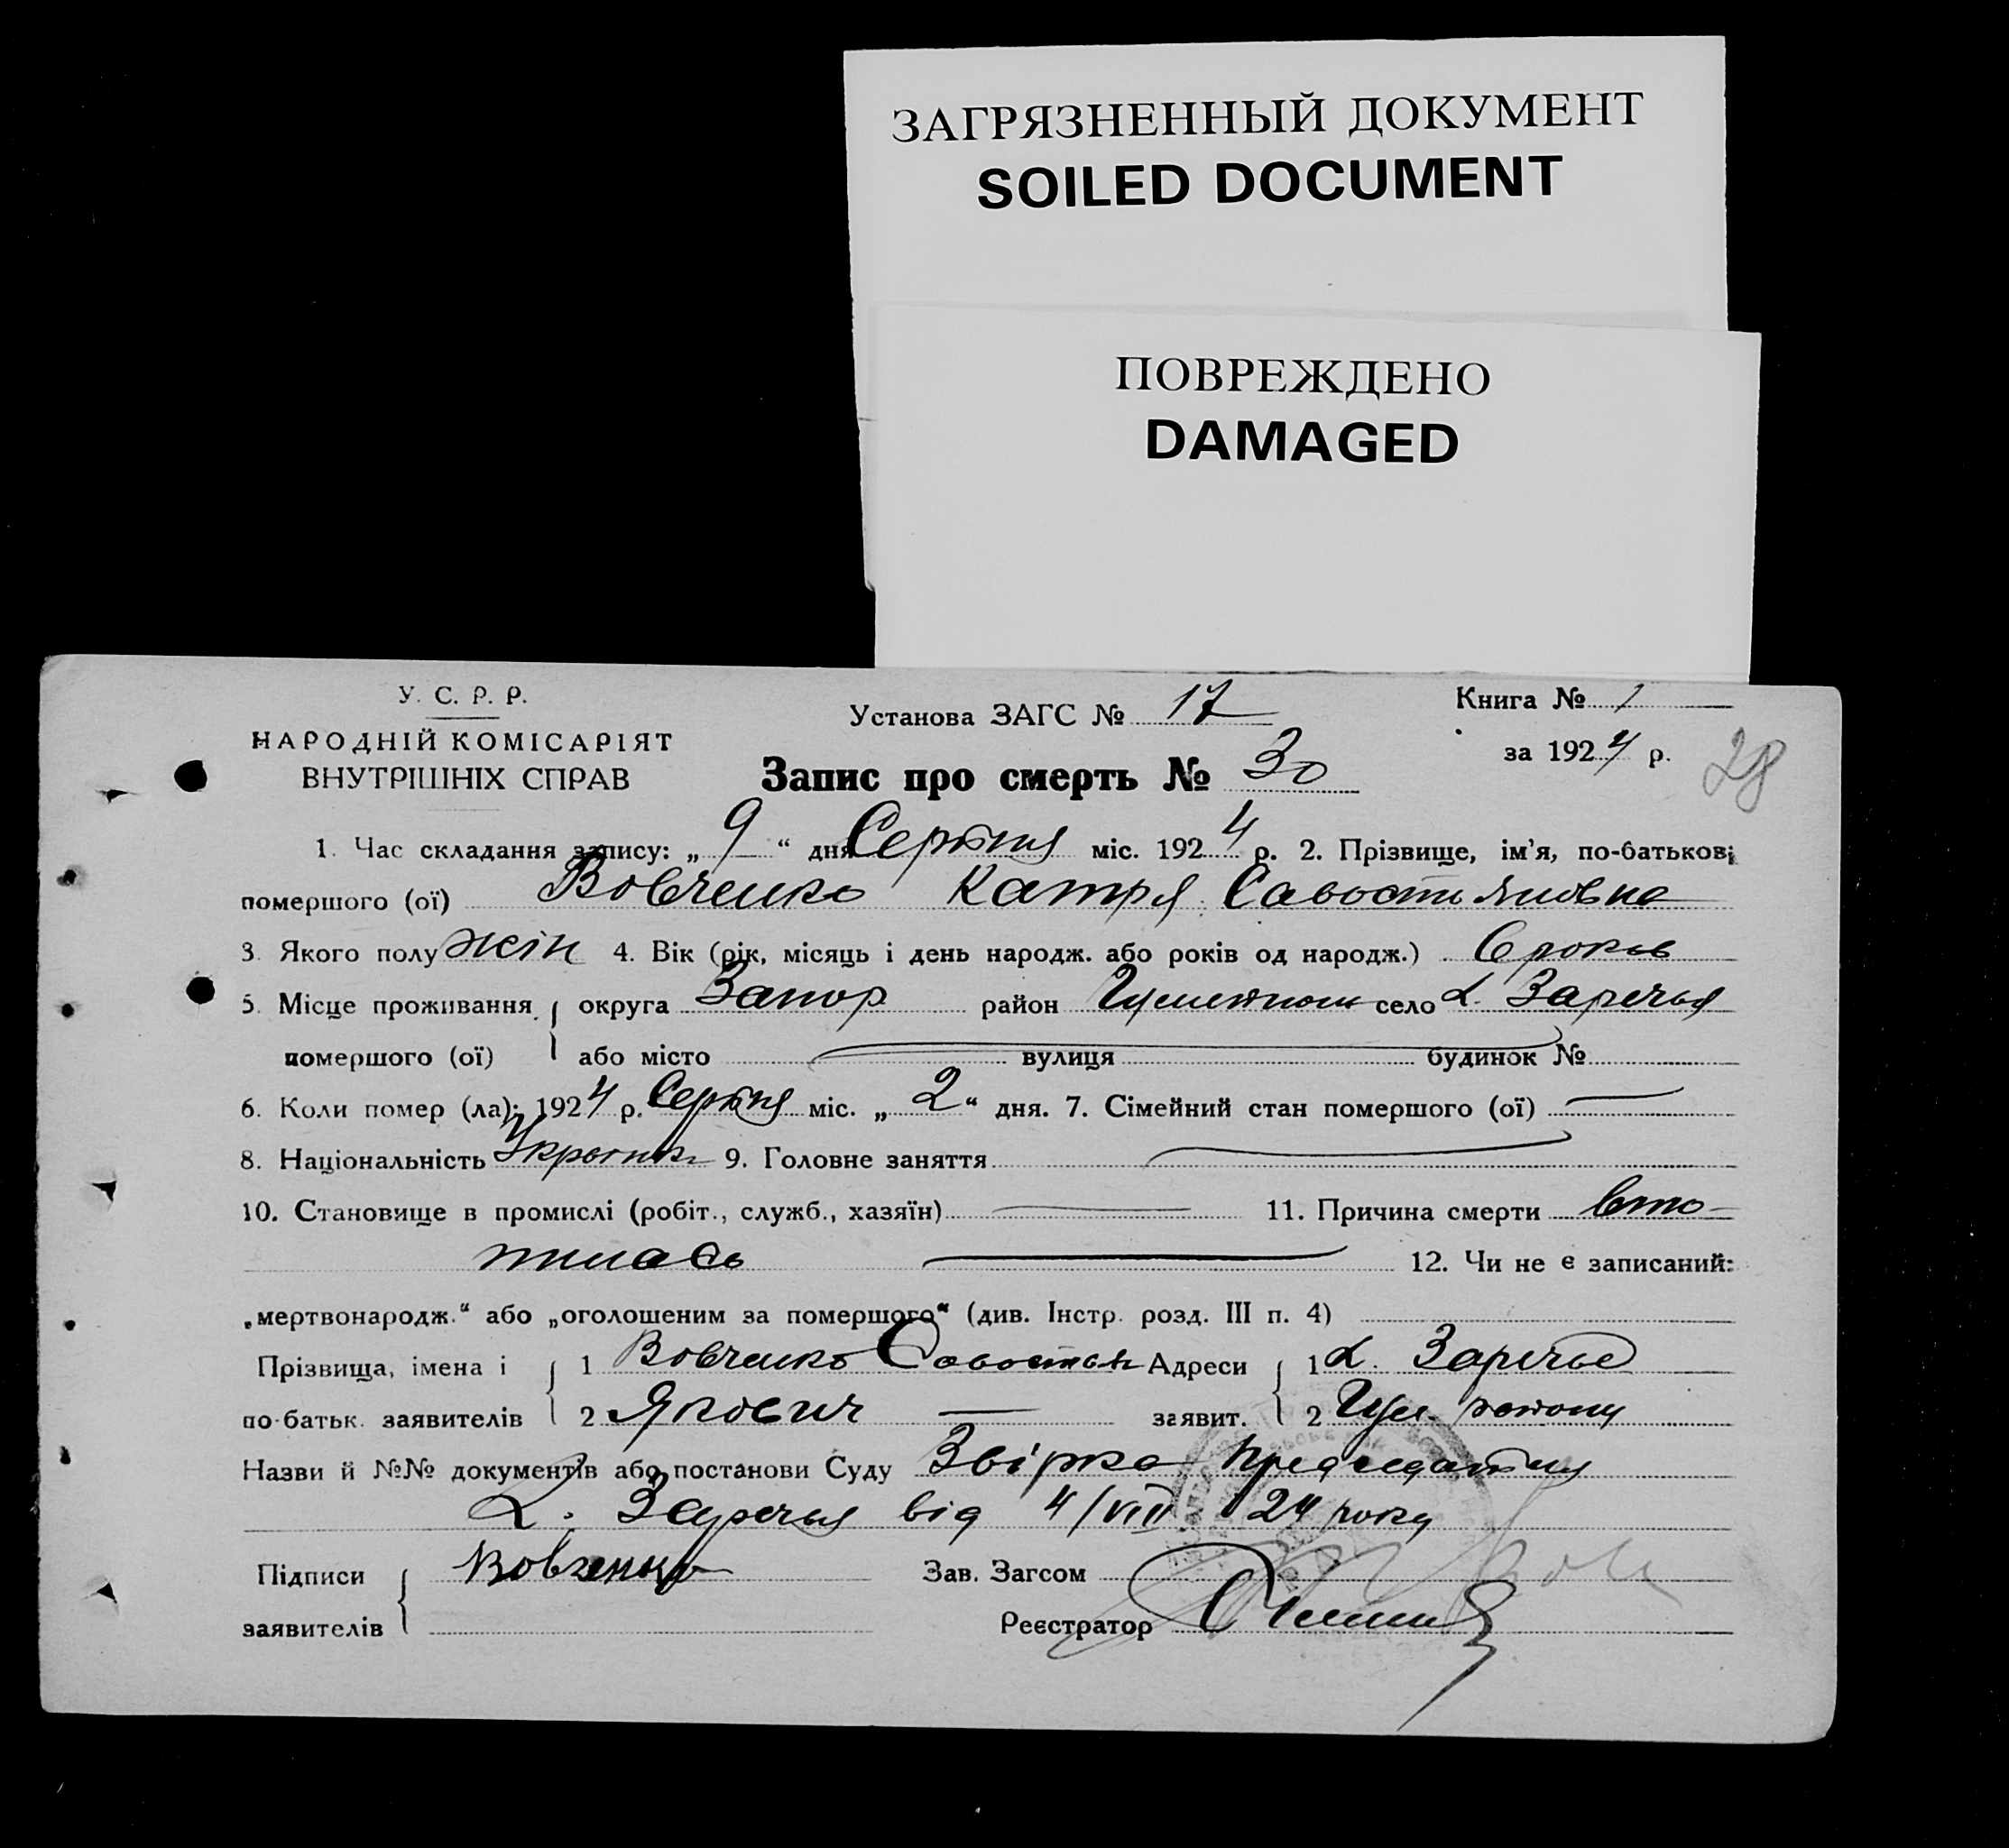 ЗАГРЯЗНЕННЫЙ ДОКУМЕНТ
SOILED DOCUMENT
ПОВРЕЖДЕНО
DAMAGED
У. С. Р. Р.
НАРОДНІЙ КОМІСАРІЯТ
ВНУТРІШНІХ СПРАВ
Установа ЗАГС № 17
Книга № 1
за 1924 р.
28
Запис про смерть № 30
1. Час складання запису: „ 9 “ дня Серпня міс. 1924 р. 2. Прізвище, ім’я, по-батькові
помершого (ої) Вовченко Катря Савостияновна
3. Якого полу жін 4. Вік (рік, місяць і день народж. або років од народж.) 6 років
5. Місце проживання округа Запор район село с. Заречья
помершого (ої) або місто вулиця будинок №
6. Коли помер (ла): 1924 р. Серпня міс. „ 2 “ дня. 7. Сімейний стан помершого (ої) —
8. Національність 9. Головне заняття
10. Становище в промислі (робіт., служб., хазяїн) 11. Причина смерти вто-
пилась 12. Чи не є записаний:
„мертвонародж.“ або „оголошеним за помершого“ (див. Інстр. розд. III п. 4)
Прізвища, імена і 1 Вовченко Савостьян Адреси 1 с. Заречье
по-батьк. заявителів 2 Якович — заявит. 2 району
Назви й №№ документів або постанови Суду
с. Заречья від 4/VIII 24 року
Підписи Вовченко Зав. Загсом
заявителів Реєстратор